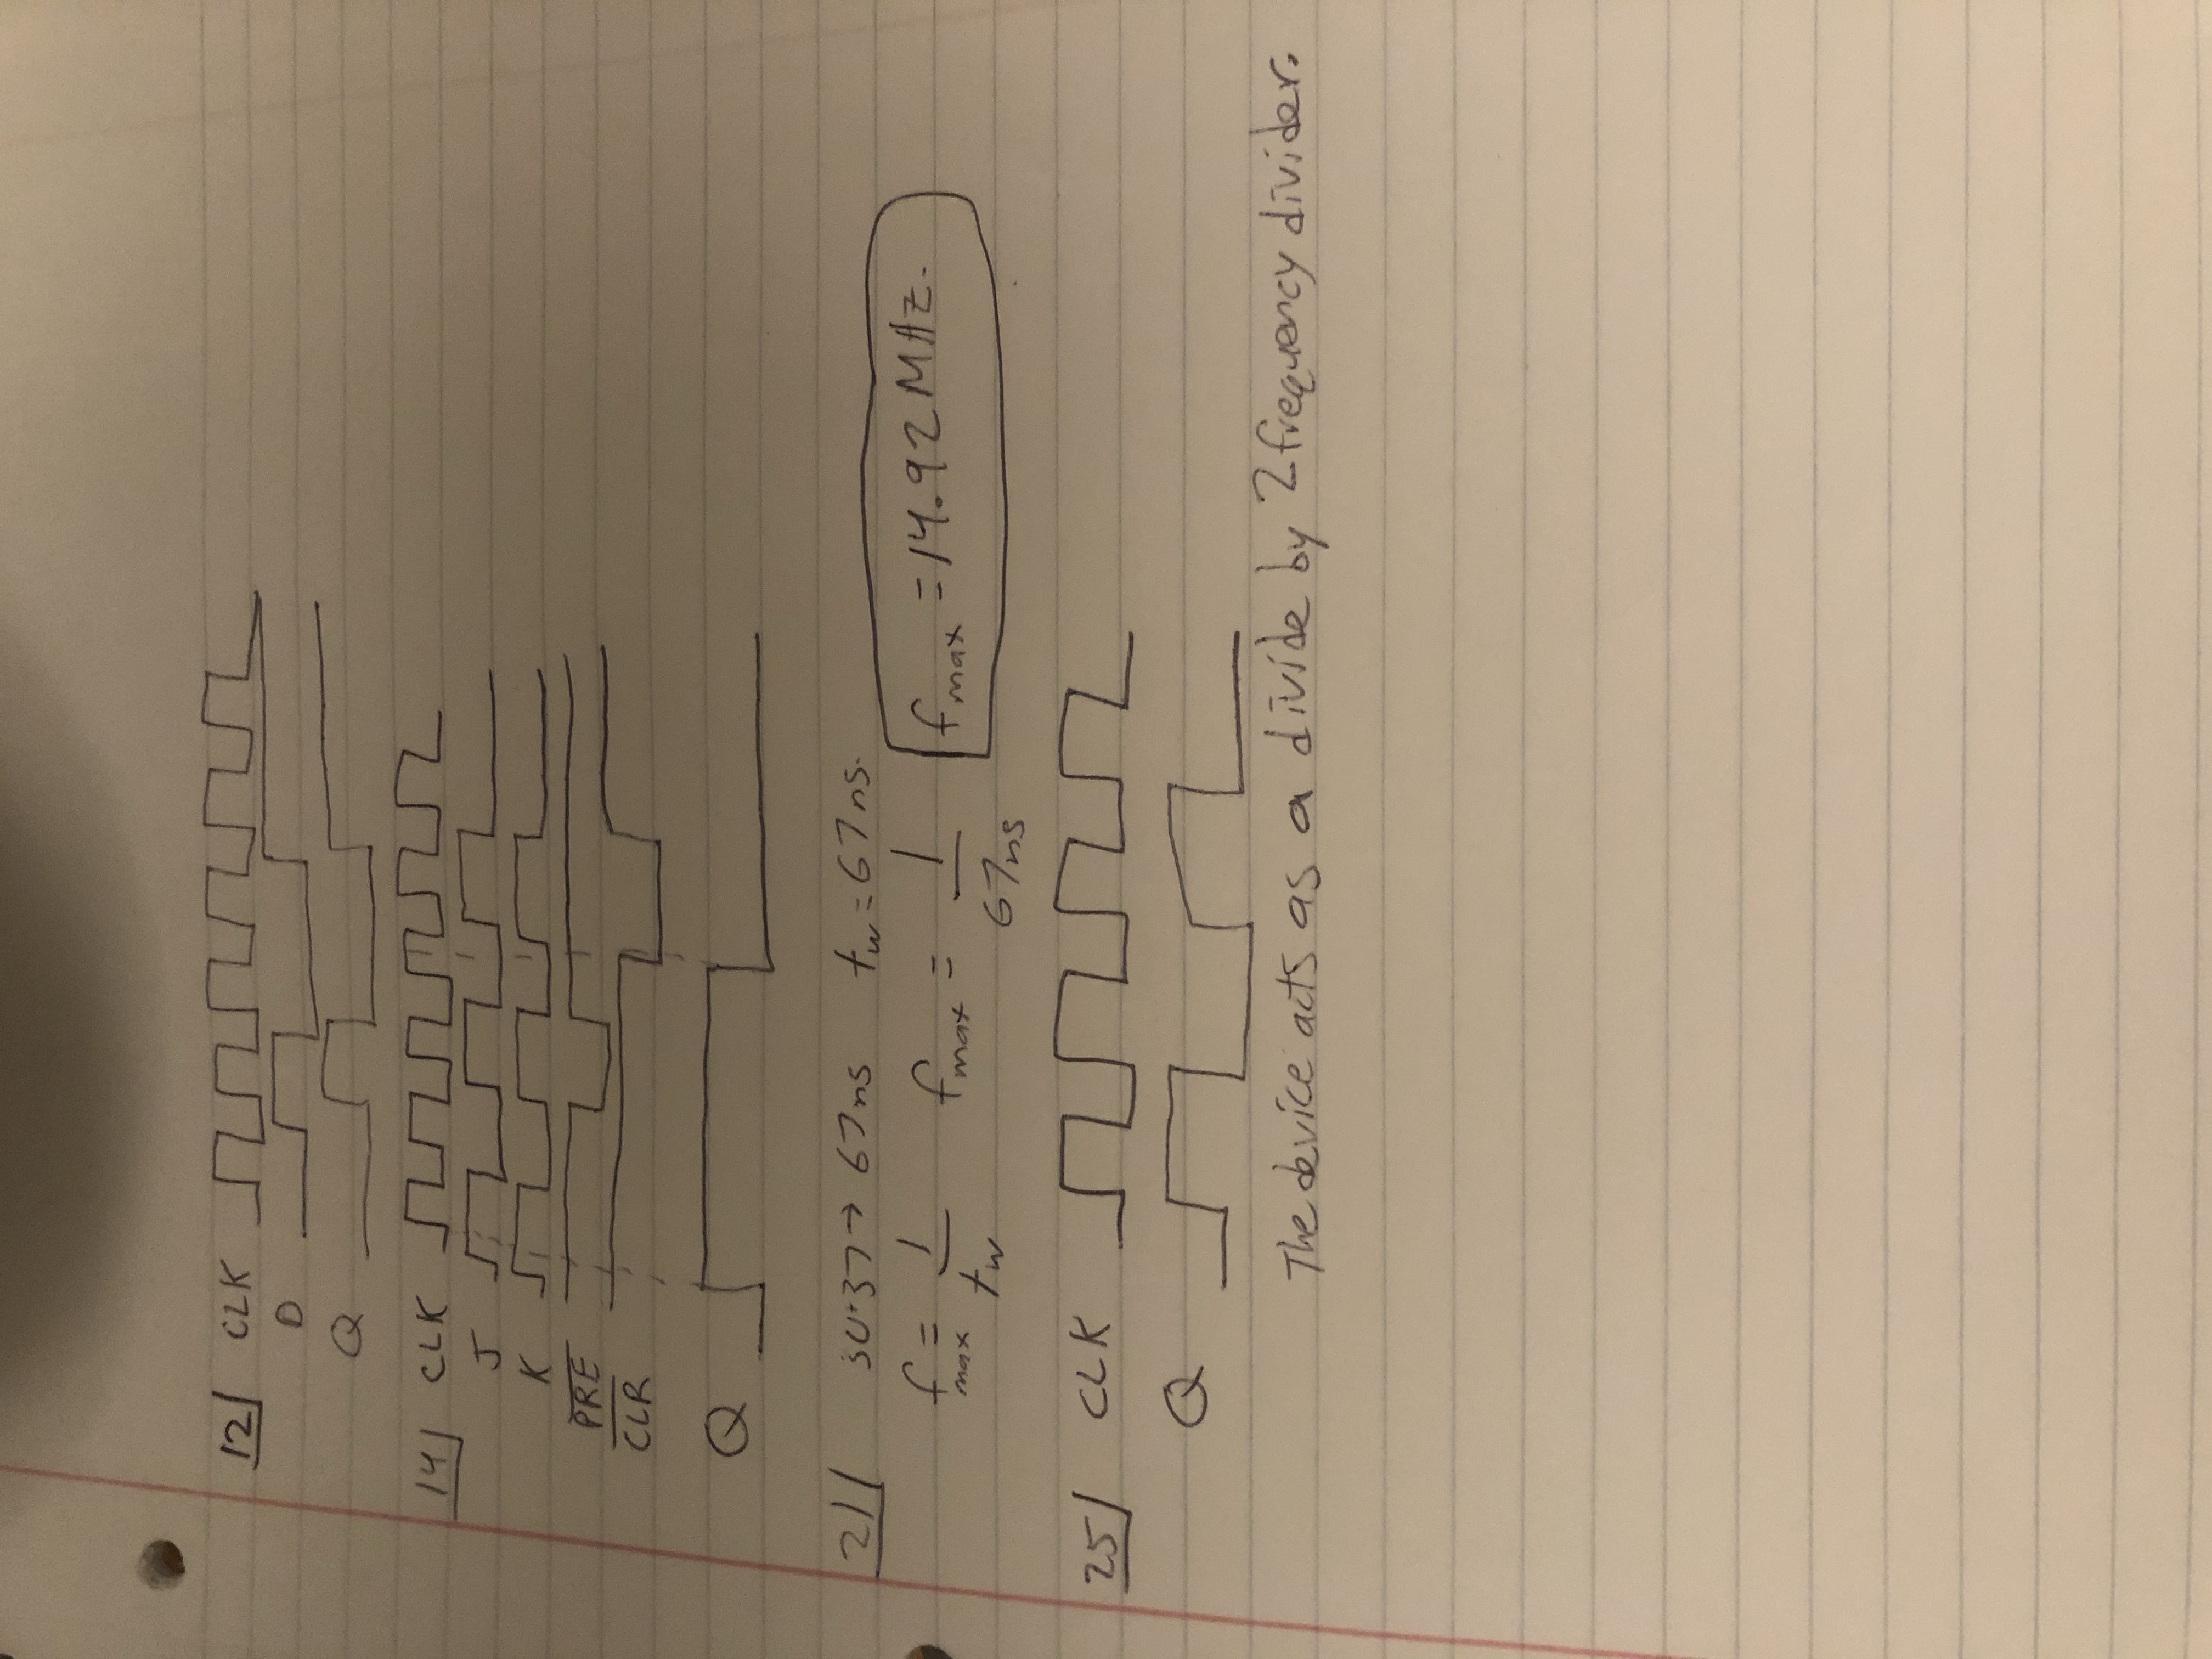 12/ CLK
D
Q
14/ CLK
J
K
PRE
CLR
Q
21/ 30+37→ 67ns tw=67ns.
fmax = 1/tw fmax = 1/67ns fmax =14.92 MHz.
25/ CLK
Q
The device acts as a divide by 2 frequency divider.